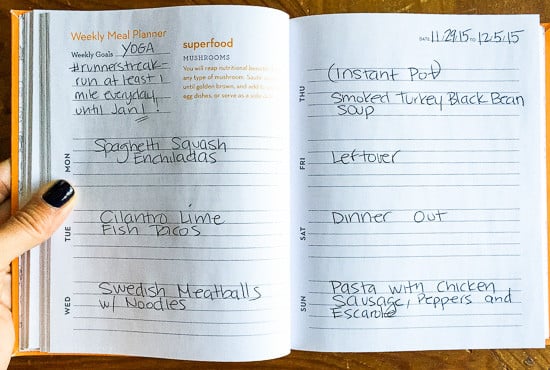 Weekly Meal Planner
Weekly Goals YOGA
#runnerstreak-
run at least 1
mile everyday
until Jan 1!
superfood
MUSHROOMS
You will reap nutritional
any type of mushroom.
until golden brown, and add
egg dishes, or serve as a
MON
Spaghetti Squash
Enchiladas
TUE
Cilantro Lime
Fish Tacos
WED
Swedish Meatballs
w/ Noodles
DATE 11.29.15 TO 12.5.15
THU
(Instant Pot)
Smoked Turkey Black Bean
Soup
FRI
Leftover
SAT
Dinner Out
SUN
Pasta with Chicken
Sausage, Peppers and
Escarole